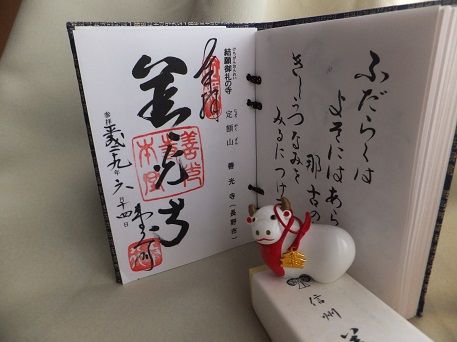 ふだらくは
よそにはあら
那古の
きしうつなみを
みるにつけ
結願御礼の寺 定額山 善光寺(長野市)
奉拝
善光寺
参拝 平成二九年六月十四日
信州